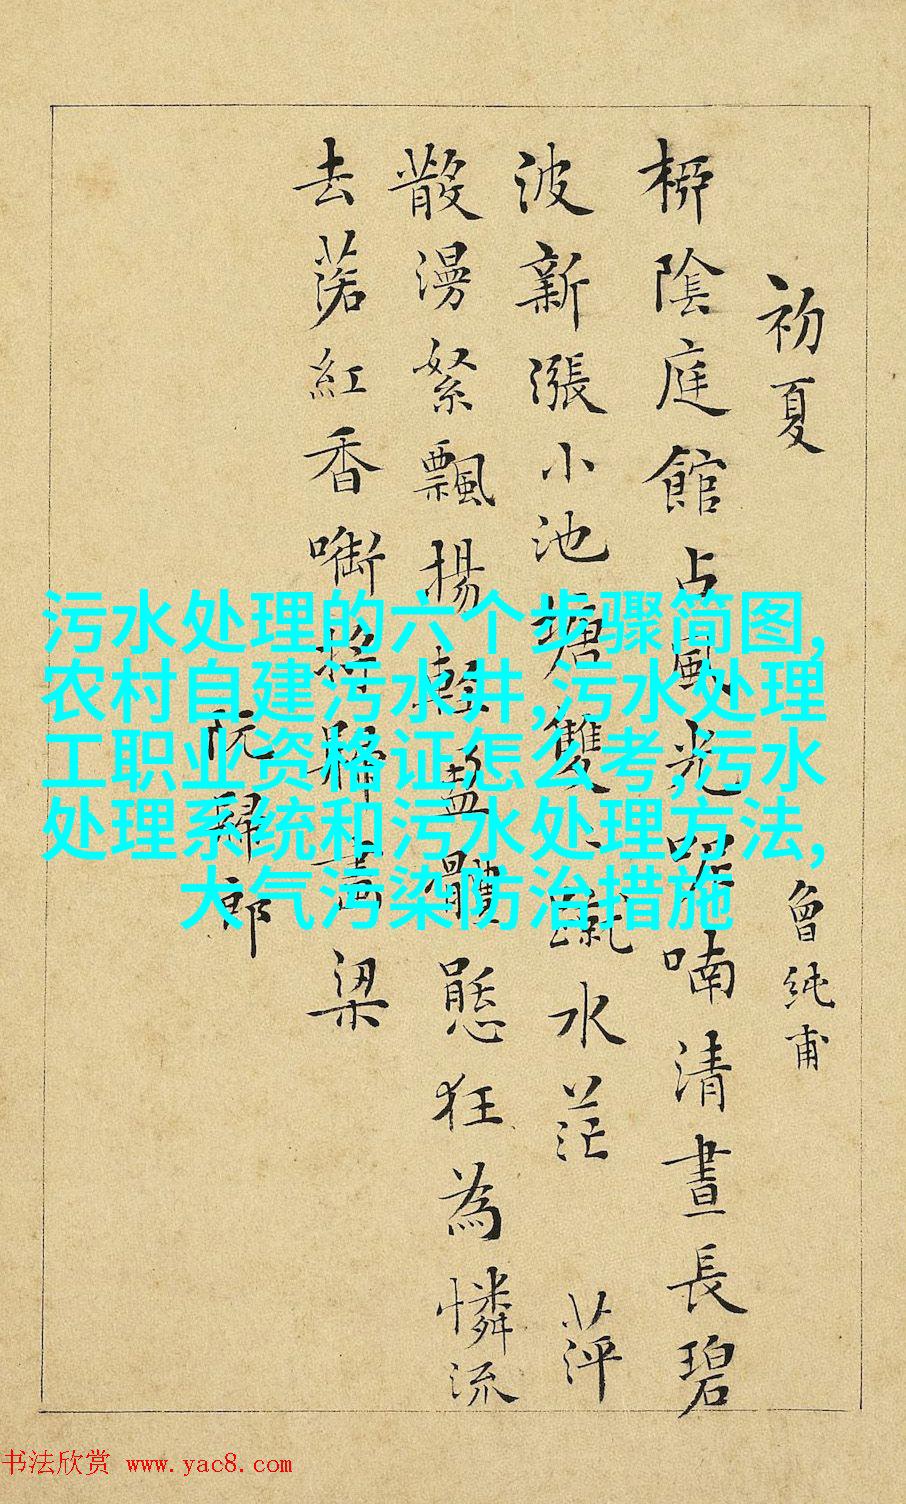 初夏 曾純甫
桺陰庭館占風光呢喃清晝長碧
波新漲小池塘雙〻蹴水茫萍
散漫絮飄揚輕盈體態狂為憐流
去落紅香啣將歸畫梁
阮歸郎
污水处理的六个步骤简图,
农村自建污水井,污水处理
工职业资格证怎么考,污水
处理系统和污水处理方法,
大气污染防治措施
书法欣赏 www.yac8.com